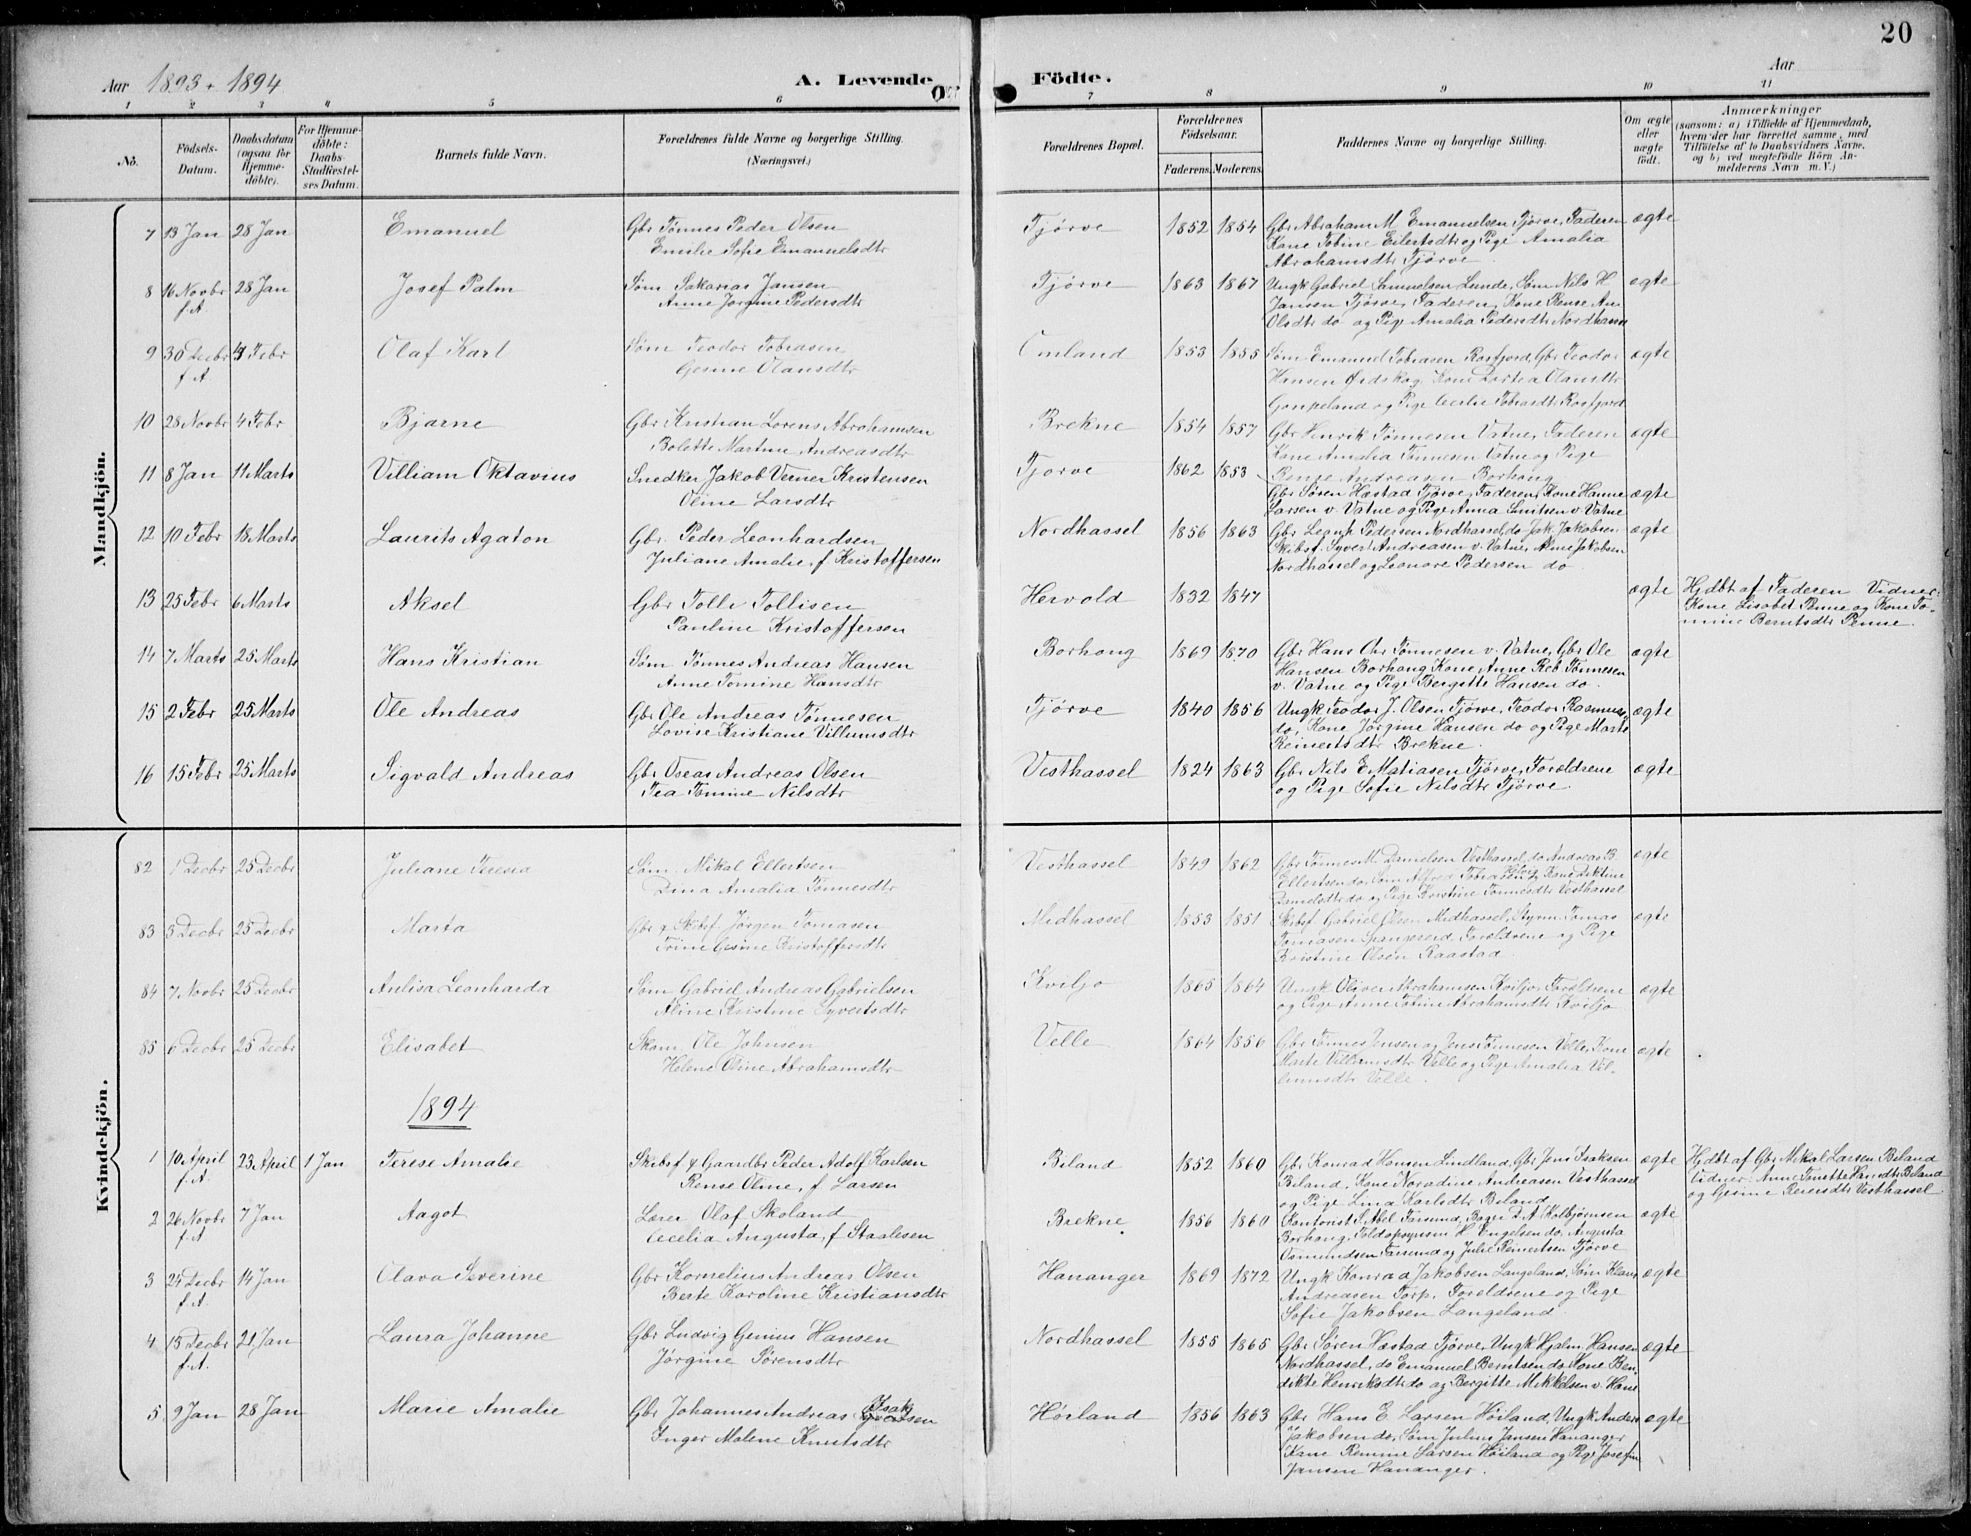 20
Aar 1893 + 1894
A. Levende
Födte.
Aar
1 2 3 4 5 6 7 8 9 10 11
No.
Födsels-Datum.
Daabsdatum (ogsaa for Hjemme-döbte).
For Hjemme-döbte: Daabs-Stadfæstel-ses Datum.
Barnets fulde Navn.
Forældrenes fulde Navne og borgerlige Stilling. (Næringsvei.)
Forældrenes Bopæl.
Forældrenes Födselsaar.
Faderens. Moderens.
Faddernes Navne og borgerlige Stilling.
Om ægte eller uægte födt.
Anmærkninger
(saasom: a) i Tilfælde af Hjemmedaab,
hvem der har forrettet samme, med
Tilföielse af to Daabsvidners Navne.
og b) ved uægtefödte Börn An-
melderens Navn m. V.)
Mandkjön.
7 13 Jan 28 Jan Emanuel Gbr Tønnes Peder Olsen Tjørve 1852 1854 Gbr Abraham M Emanuelsen Tjørve, Faderen ægte
Emilie Sofie Emanuelsdtr Kone Tobine Eilertsdtr og Pige Amalia
Abrahamsdtr Tjørve
8 16 Novbr 28 Jan Josef Palm Søm Sakarias Jansen Tjørve 1863 1867 Ungk Gabriel Samuelsen Lunde, Søm Nils H ægte
f.A Anne Jørgine Pedersdtr Jansen Tjørve, Faderen, Kone Rense An
Olsdtr do og Pige Amalia Pedersdtr Nordhassel
9 30 Decbr 4 Febr Olaf Karl Søm Teodor Tobiasen Omland 1853 1855 Søm Emanuel Tobiasen Rosfjord, Gbr Teodor ægte
f.A. Gesine Olausdtr Hansen Ørdskog, Kone Dortea Olausdtr
og Pige Cecilie Tobiasdtr Rosfjord
10 28 Novbr 4 Febr Bjarne Gbr Kristian Lorens Abrahamsen Brekne 1854 1857 Gbr Henrik Tønnesen Vatne, Faderen ægte
Bolette Martine Andreasdtr Kone Amalia Tønnesen Vatne og Pige
Andreasen Borhaug
11 8 Jan 11 Marts Villiam Oktavius Snedker Jakob Verner Kristensen Tjørve 1862 1853 Gbr Søren Hæstad Tjørve, Faderen, Kone Hanne ægte
Oline Larsdtr Larsen v. Vatne og Pige Anna Knutsen v. Vatne
12 10 Febr 18 Marts Laurits Agaton Gbr. Peder Leonhardsen Nordhassel 1856 1863 Gbr Pedersen Nordhassel, do Jak. Jakobsen ægte
Juliane Amalie, f Kristoffersen Skibsf. Syvert Andreasen v. Vatne, Jakobsen
Nordhassel og Leonore Pedersen do
13 25 Febr 6 Marts Aksel Gbr Tolle Tollisen Hervold 1832 1847 ægte Hjdbt af Faderen Vidner:
Pauline Kristoffersen Kone Lisabet Penne og Kone To-
mine Berntsdtr Penne.
14 7 Marts 25 Marts Hans Kristian Søm Tønnes Andreas Hansen Borhaug 1869 1870 Gbr Hans Chr Tønnesen v. Vatne, Gbr Ole ægte
Anne Tomine Hansdtr Hansen Borhaug, Kone Anne Reb. Tønnesen
v. Vatne og Pige Bergitte Hansen do.
15 2 Febr 25 Marts Ole Andreas Gbr Ole Andreas Tønnesen Tjørve 1840 1856 Ungk Teodor J. Olsen Tjørve, Teodor Rasmus. ægte
Lovise Kristiane Villumsdtr do, Kone Jørgine Hansen do og Pige Marte
Reinertsdtr Brekne.
16 15 Febr 25 Marts Sigvald Andreas Gbr Oseas Andreas Olsen Vesthassel 1824 1863 Gbr Nils E. Matiasen Tjørve, Forældrene ægte
Tea Tomine Nilsdtr og Pige Sofie Nilsdtr Tjørve.
Kvindekjön.
82 1 Decbr 25 Decbr Juliane Teresia Søm. Mikal Ellertsen Vesthassel 1849 1862 Gbr Tønnes M. Danielsen Vesthassel, do Andreas B. ægte
Dina Amalia Tønnesdtr Ellertsen do, Søm Alfred Tobiasen Kone
Danielsdtr do og Pige Kristine Tønnesdtr Vesthassel
83 3 Decbr 25 Decbr Marta Gbr & Skibsf. Jørgen Tomasen Midhassel 1853 1851 Skibsf Gabriel Olsen Midhassel, Styrm. Tomas ægte
Trine Gesine Kristoffersdtr Tomasen Spangereid, Forældrene og Pige
Kristine Olsen Raastad.
84 7 Novbr 25 Decbr Anlisa Leonharda Søm Gabriel Andreas Gabrielsen Kviljo 1865 1864 Ungk Oliver Abrahamsen Kviljo, Forældrene ægte
Aline Kristine Syvertsdtr og Pige Anne Tobine Abrahamsdtr Kviljo
85 6 Decbr 25 Decbr Elisabet Skom. Ole Johnsen Velle 1864 1856 Gbr Tønnes Jensen og Jens Tønnesen Velle, Kone ægte
Helene Oline Abrahamsdtr Marte Villumsdtr Velle og Pige Amalia Vil-
lumsdtr Velle.
1894
1 10 April 23 April 1 Jan Terese Amalie Skibsf & Gaardbr Peder Adolf Karlsen Biland 1852 1860 Gbr Konrad Hansen Lindland, Gbr Jens Isaksen ægte Hjdbt af Gbr Mikal Larsen Biland
f.A. Rense Oline, f. Larsen Biland, Kone Noradine Andreasen Vesthassel Vidner: Anne Tonette Hansdtr Biland
og Pige Lina Karlsdtr Biland og Gesine Reiersdtr Vesthassel
2 26 Novbr 7 Jan Aagot Lærer Olaf Skoland Brekne 1856 1860 Kontorist S. Abel Farsund, Bager D. A. Kolbjørnsen ægte
f.A Cecelia Augusta, f Staalesen Borhaug, Toldopsynsm H Engelsen do, Augusta
Osmundsen Farsund og Julie Reinertsen Tjørve
3 24 Decbr 14 Jan Olava Severine Gbr Kornelius Andreas Olsen Hananger 1869 1872 Ungk Konrad Jakobsen Langeland, Søm Klaus ægte
f.A. Berte Karoline Kristiansdtr Andreasen Torp, Forældrene og Pige
Sofie Jakobsen Langeland
4 15 Decbr 21 Jan Laura Johanne Gbr Ludvig Genius Hansen Nordhassel 1855 1865 Gbr Søren Hæstad Tjørve, Ungk Hjalm. Hansen ægte
f.A. Jørgine Sørensdtr Nordhassel, do Emanuel Berntsen do, Kone Ben-
dikte Henriksdtr do og Bergitte Mikkelsen v. Hans
5 9 Jan 28 Jan Marie Amalie Gbr Johannes Andreas Isaksen Høiland 1856 1863 Gbr Hans E. Larsen Høiland, Ungk Anders ægte
Inger Malene Knutsdtr Jakobsen do, Søm Julius Jansen Hananger
Kone Remine Larsen Høiland og Pige Josefin
Jansen Hananger.